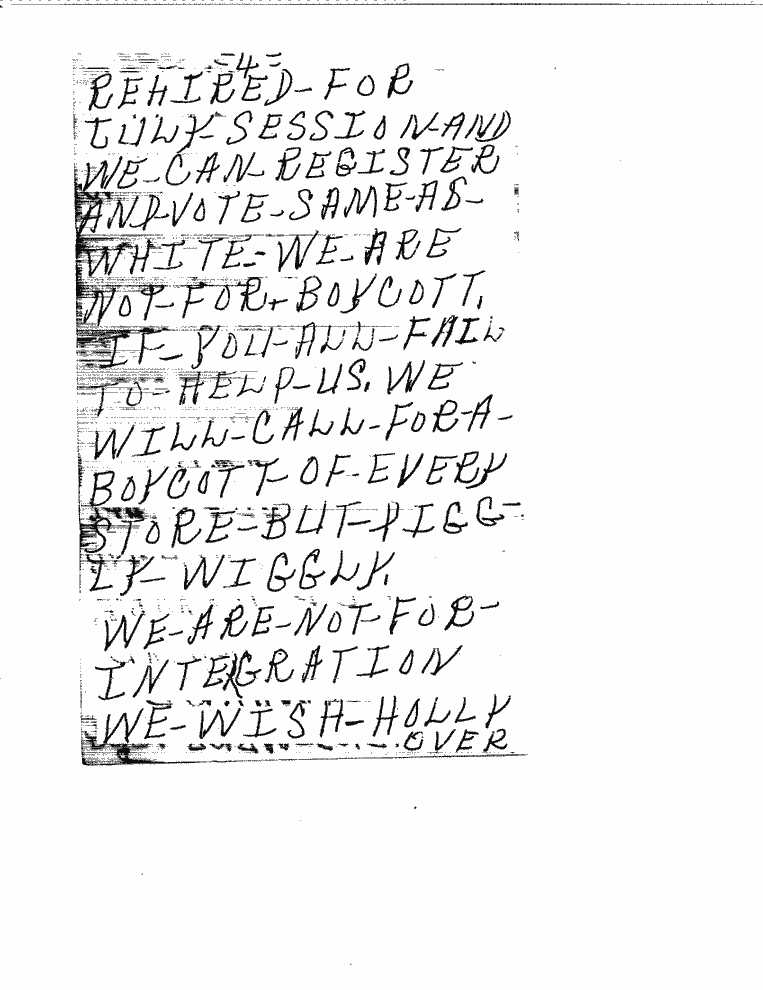 =4=
REHIRED-FOR
JULY-SESSION-AND
WE-CAN-REGISTER
AND-VOTE-SAME-AS-
WHITE-WE-ARE
NOT-FOR-BOYCOTT,
IF-YOU-ALL-FAIL
TO-HELP-US. WE
WILL-CALL-FOR-A-
BOYCOTT-OF-EVERY
STORE-BUT-PIGG-
LY-WIGGLY.
WE-ARE-NOT-FOR-
INTEGRATION
WE-WISH-HOLLY
OVER